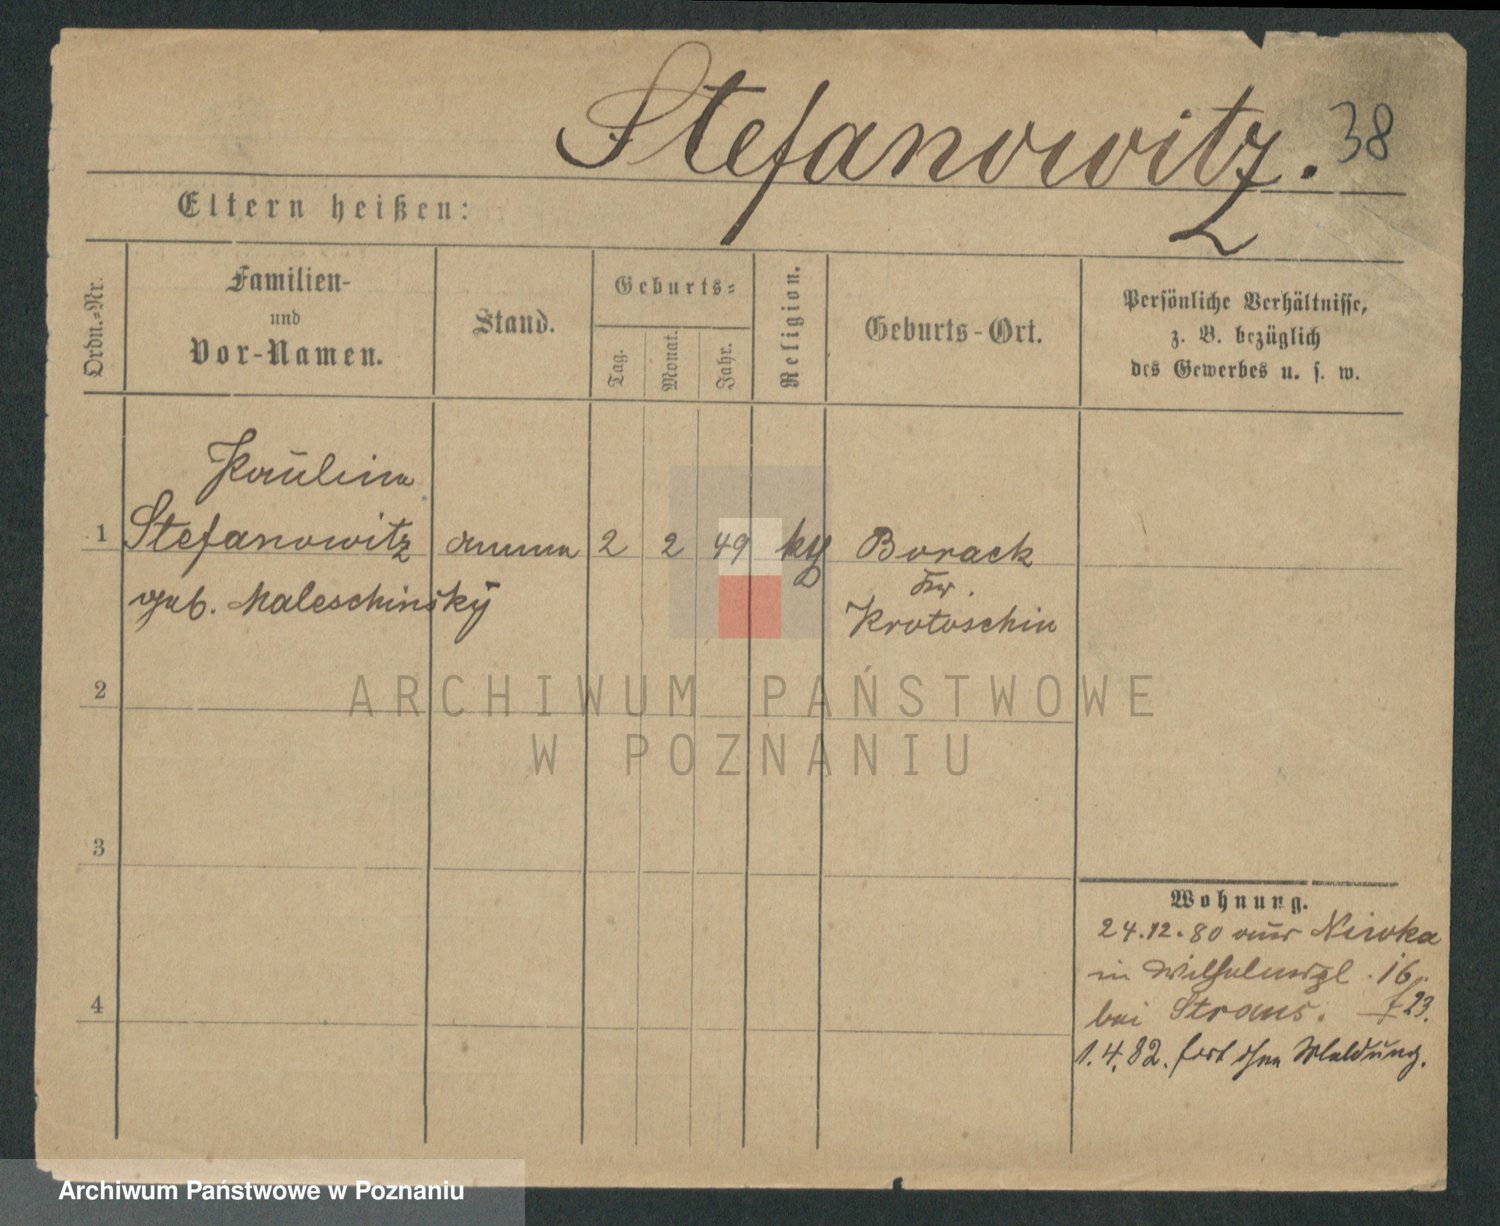 Stefanowitz. 38
Eltern heißen:
Ordn.-Nr.
Familien-
und
Vor-Namen.
Stand.
Geburts-
Tag.
Monat.
Jahr.
Religion.
Geburts-Ort.
Persönliche Verhältnisse,
z. B. bezüglich
des Gewerbes u. s. w.
Paulina
1 Stefanowitz Amme 2 2 49 kg Borack
geb. Maleschinský Kr. Krotoschin
2
ARCHIWUM PAŃSTWOWE
W POZNANIU
3
4
Wohnung.
24.12.80 aus
in Wilhelmspl. 16.
bei Straus. f 23.
1.4.82. fort ohne Meldung.
Archiwum Państwowe w Poznaniu